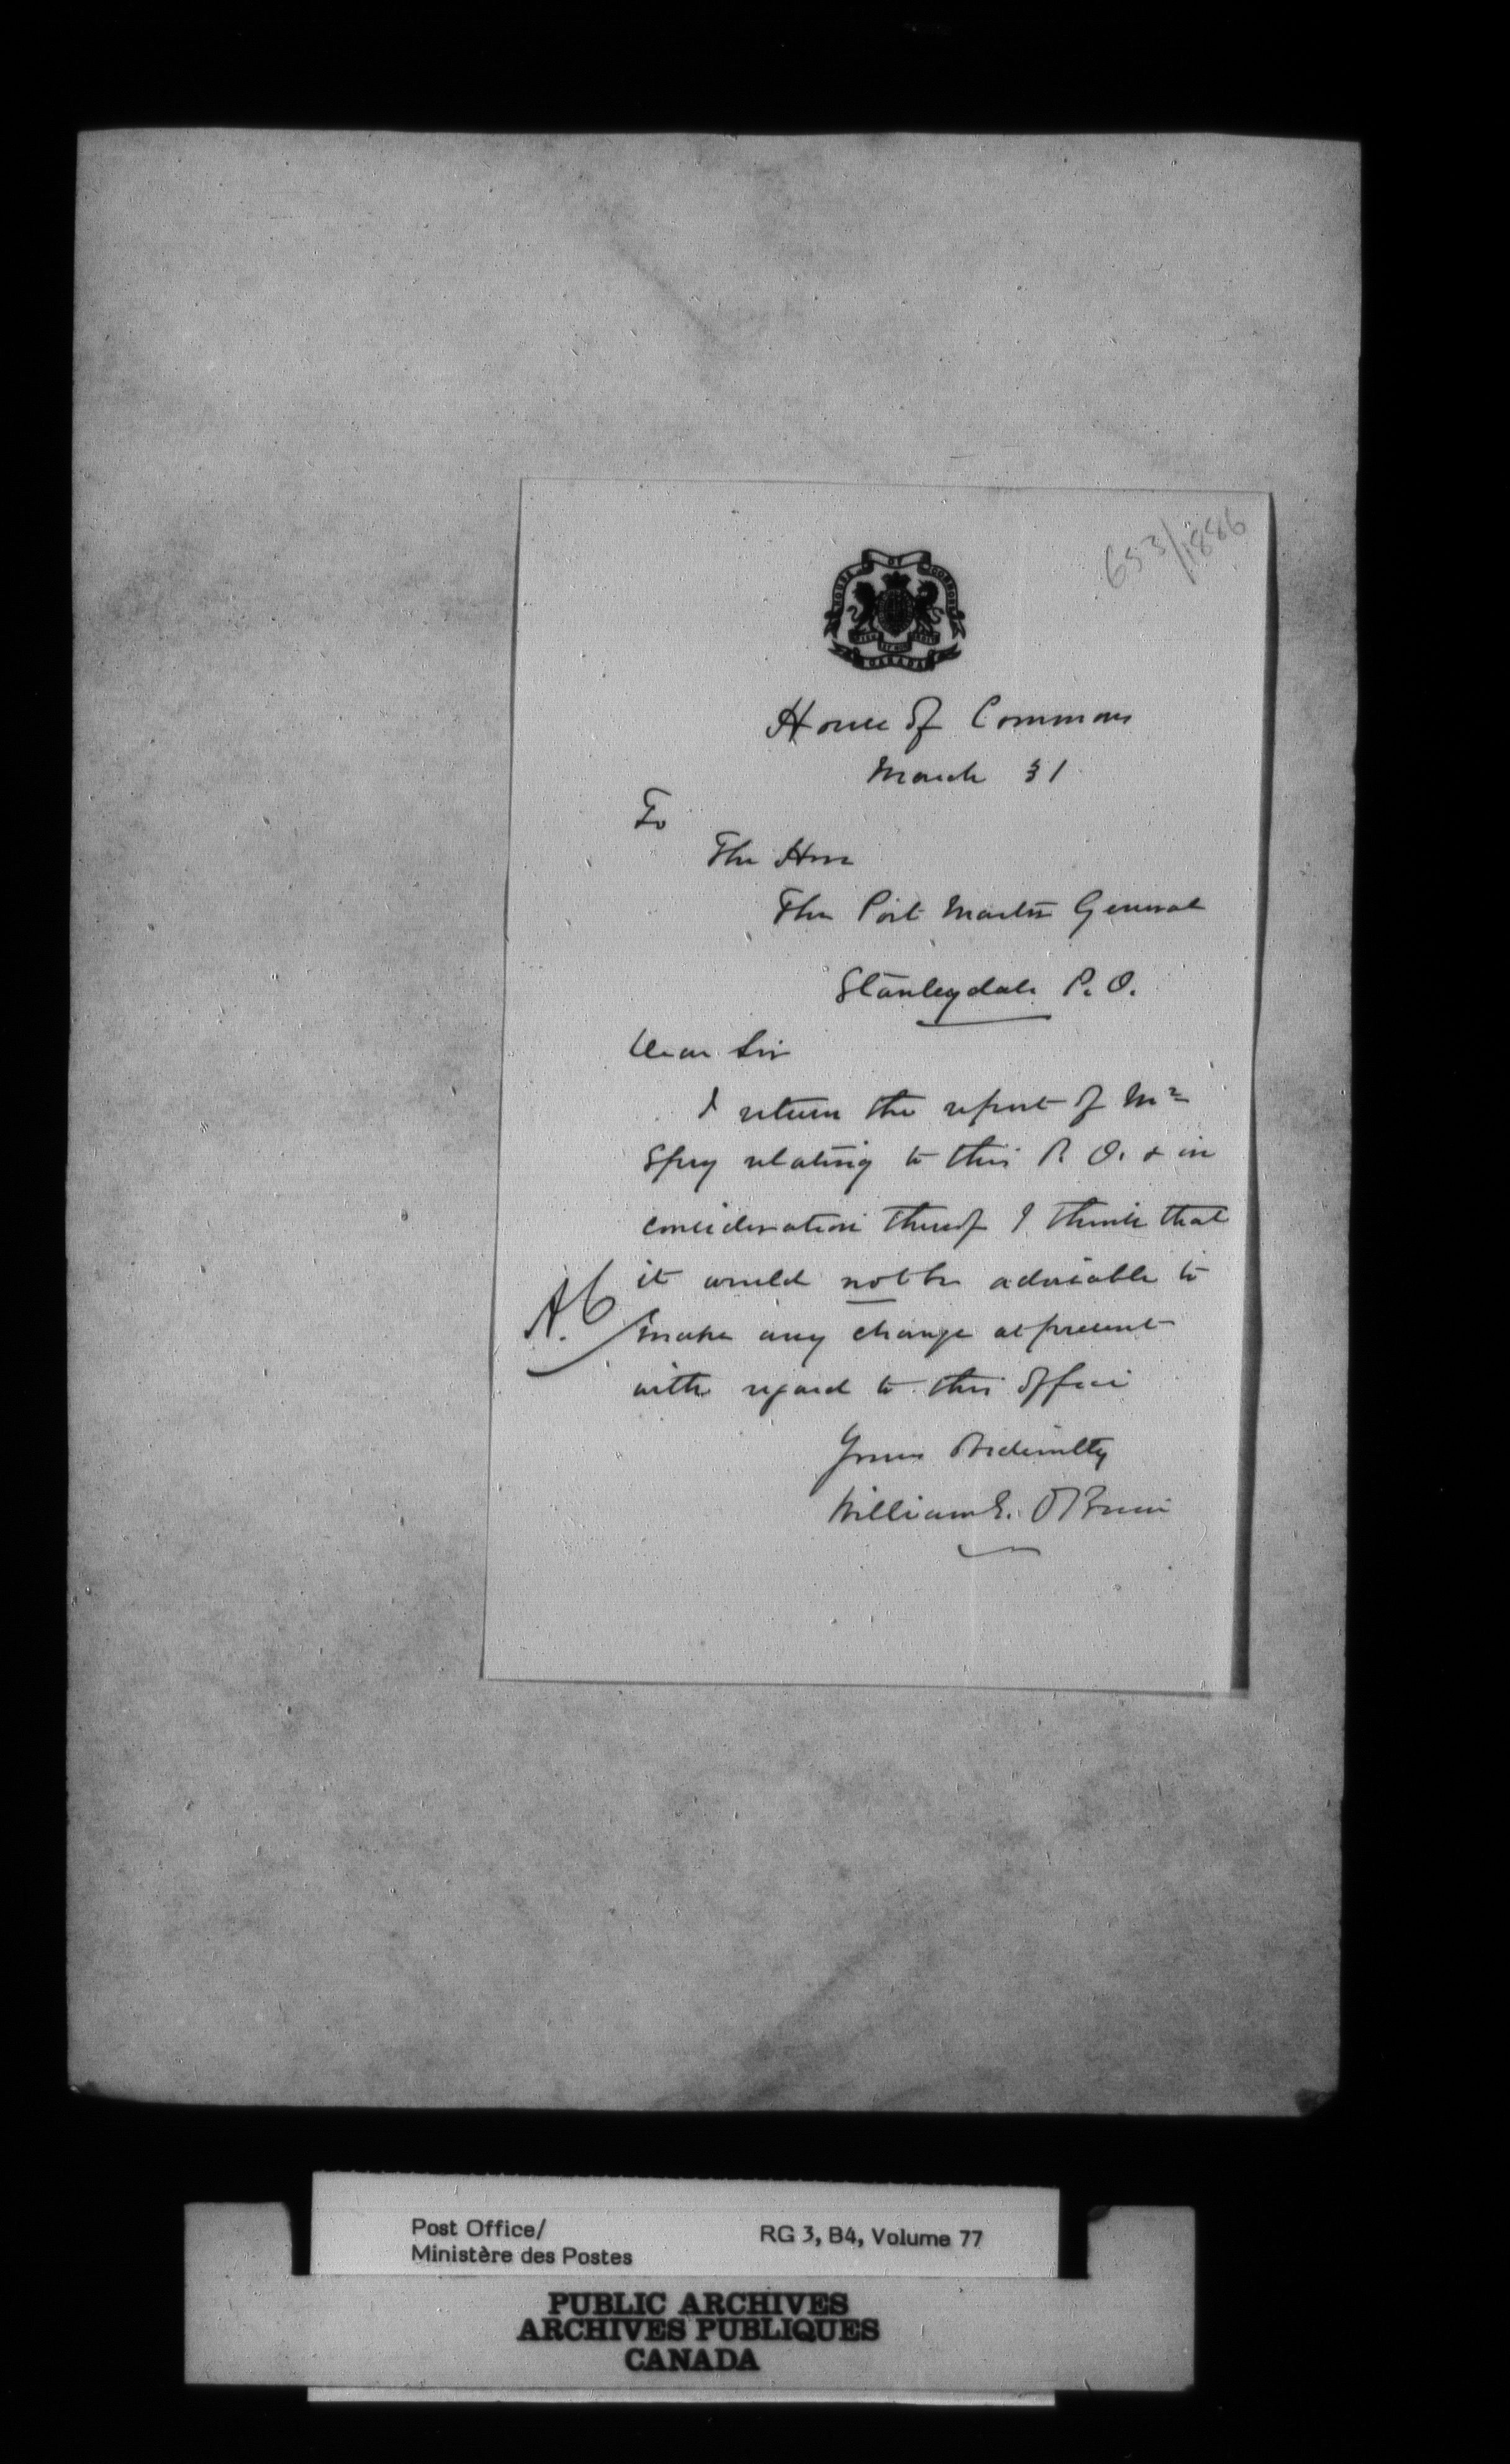 653/1886
HOUSE OF COMMONS
CANADA
House of Commons
March 31
To
The Hon
The Post Master General
Stanleydale P. O.
Dear Sir
I return the report of Mr
Spry relating to this P. O. & in
consideration thereof I think that
it would not be advisable to
make any change at present
with regard to this office
Yours
William E. O'Brien
A.
Post Office/
Ministère des Postes
RG 3, B4, Volume 77
PUBLIC ARCHIVES
ARCHIVES PUBLIQUES
CANADA